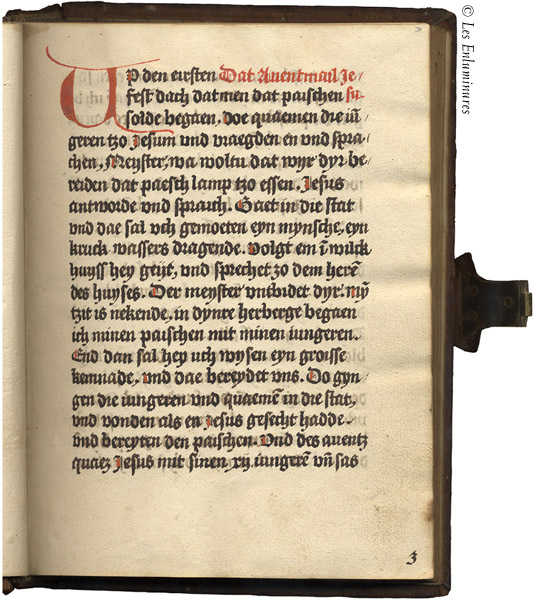 Up den eirsten Dat Auentmail Je/
fest dach datmen dat paischen su/
solde begaen, doe quaemen die iū
geren tzo Jesum vnd vraegden en vnd spra/
chen, Meyster, wa woltu dat wyr dyr be/
reiden dat paesch lamp tzo essen. Jesus
antworde vnd sprach. Gaet in die stat
vnd dae sal vch gemoeten eyn mynsche, eyn
kruck wassers dragende. Volgt em ī wilck
huyss hey geyt, vnd sprechet zo dem herē
des huyses. Der meyster vntbidet dyr. mȳ
tzit is nekende, in dynre herberge begaen
ich minen paischen mit minen iungeren.
End dan sal hey vch wysen eyn groisse
kemnade, vnd dae bereydet vns. Do gyn/
gen die iungeren vnd quaemē in die stat,
vnd vonden als en Jesus gesecht hadde.
vnd bereyten den paischen. Vnd des auentz
quaez Jesus mit sinen xij iungerē vn̄ sas
3
© Les Enluminures